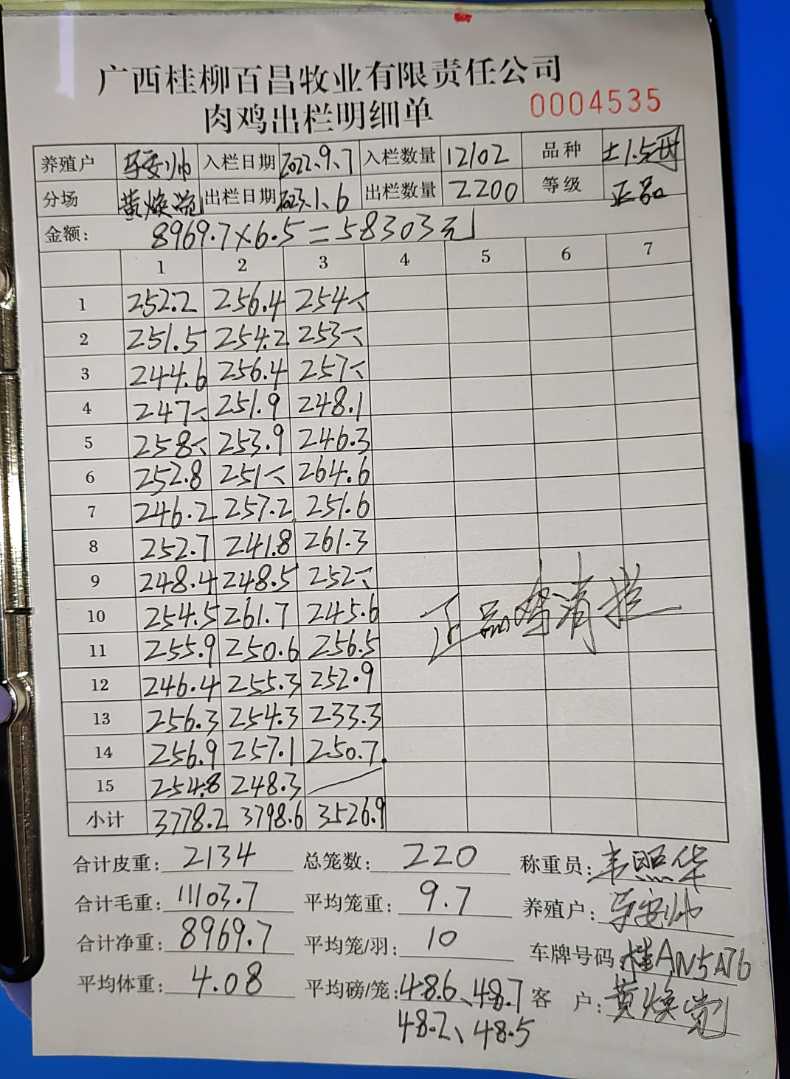 广西桂柳百昌牧业有限责任公司
肉鸡出栏明细单 0004535
养殖户 马安帅 入栏日期 2022.9.7 入栏数量 12102 品种 土1.5
分场 黄焕 出栏日期 2023.1.6 出栏数量 2200 等级 正品
金额: 8969.7×6.5=58303元
1 2 3 4 5 6 7
1 252.2 256.4 254
2 251.5 254.2 253
3 244.6 256.4 257
4 247 251.9 248.1
5 258 253.9 246.3
6 252.8 251 264.6
7 246.2 257.2 251.6
8 252.7 241.8 261.3
9 248.4 248.5 252
10 254.5 261.7 245.6
11 255.9 250.6 256.5
12 246.4 255.3 252.9
13 256.3 254.3 233.3
14 256.9 257.1 250.7
15 254.8 248.3
小计 3778.2 3798.6 3526.9
正品鸡清栏
合计皮重: 2134 总笼数: 220 称重员: 韦照华
合计毛重: 11103.7 平均笼重: 9.7 养殖户: 马安帅
合计净重: 8969.7 平均笼/羽: 10 车牌号码: 桂AN5A76
平均体重: 4.08 平均磅/笼: 48.6、48.7 客户: 黄焕
48.2、48.5